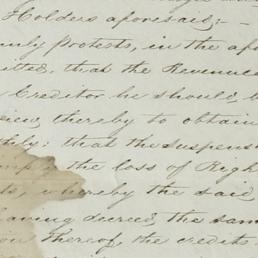 Holders aforesaid; —
protests, in the afo
itted, that the Revenues
Creditor he should, b
iew, thereby to obtain
that the suspens
the loss of Righ
whereby the said
having decreed, the sam
ion thereof, the credits